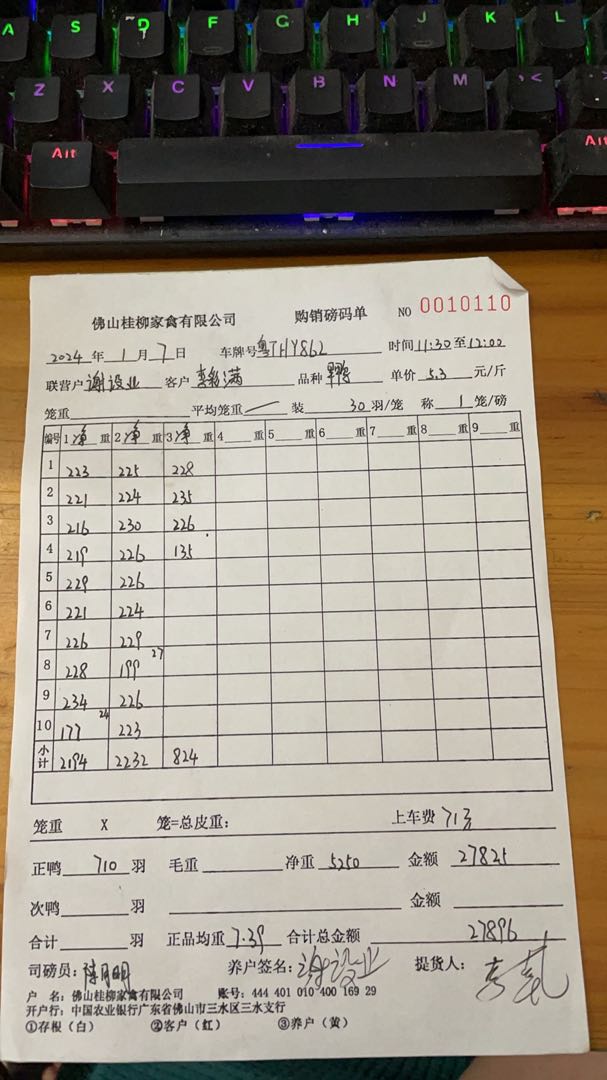 A S D F G H J K L
Z X C V B N M , <
Alt Alt
佛山桂柳家禽有限公司 购销磅码单 NO 0010110
2024 年 1 月 7 日 车牌号 粤THY862 时间 11:30 至 12:00
联营户 谢设业 客户 满 品种 鸭 单价 5.3 元/斤
笼重 平均笼重 装 30 羽/笼 称 1 笼/磅
编号 1 净 重 2 净 重 3 净 重 4 重 5 重 6 重 7 重 8 重 9 重
1 223 225 228
2 221 224 235
3 216 230 226
4 219 226 135
5 229 226
6 221 224
7 226 229
8 228 199 27
9 234 226
10 177 24 223
小计 2194 2232 824
笼重 X 笼=总皮重: 上车费 71元
正鸭 710 羽 毛重 净重 5250 金额 27825
次鸭 羽 金额
合计 羽 正品均重 7.39 合计总金额 27896
司磅员: 陈月明 养户签名: 谢设业 提货人:
户 名: 佛山桂柳家禽有限公司 账号: 444 401 010 400 169 29
开户行: 中国农业银行广东省佛山市三水区三水支行
①存根(白) ②客户(红) ③养户(黄)